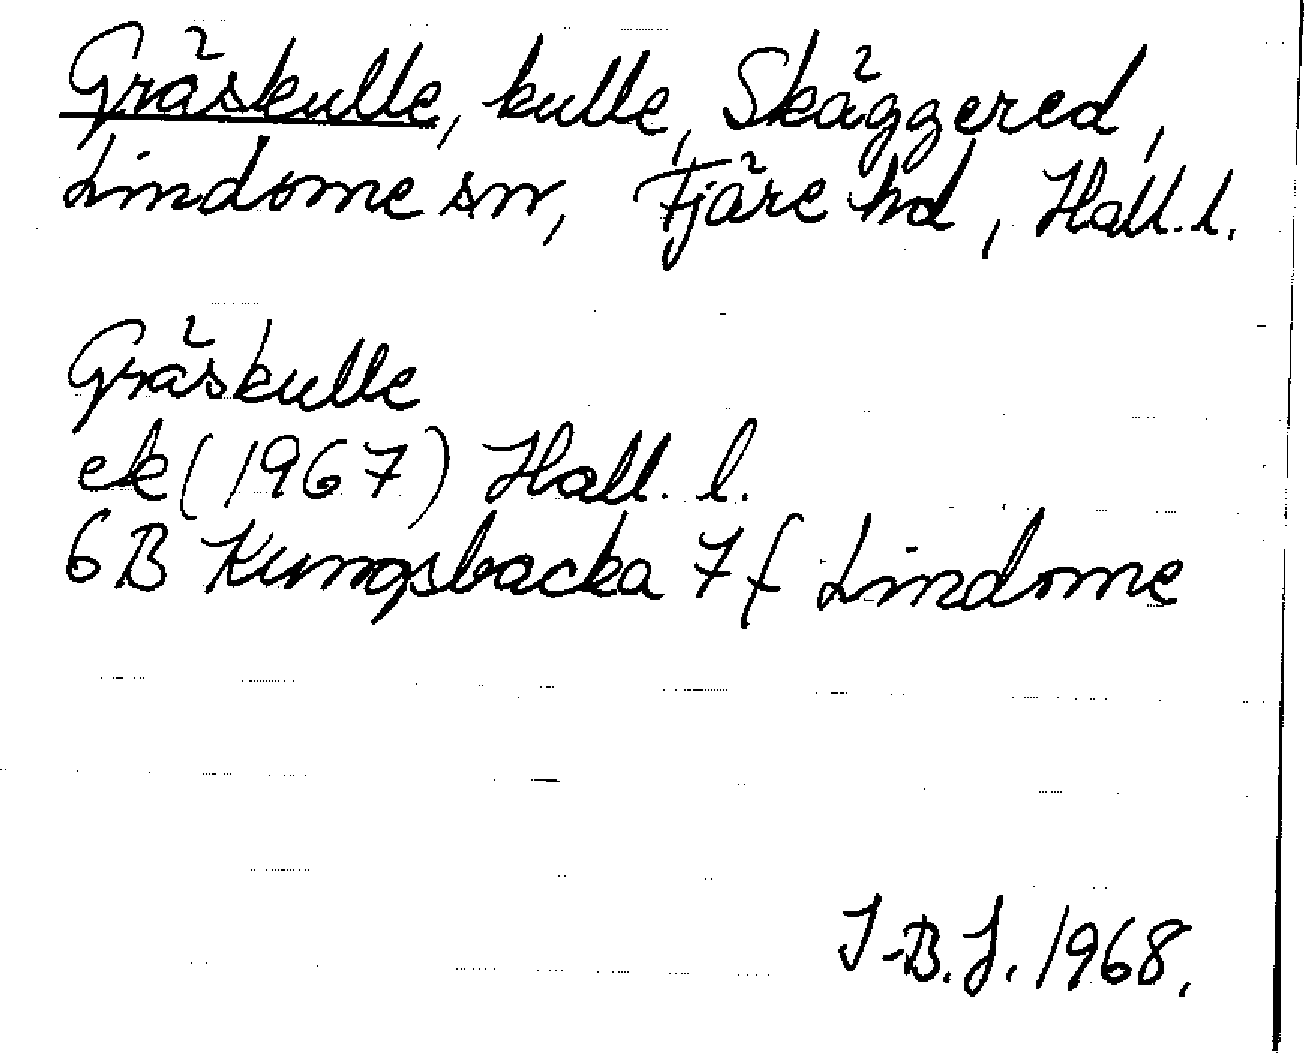 Gräskulle, kulle, Skäggered,
Lindome sn, Fjäre hd, Hall. l.
Gräskulle
ek (1967) Hall. l.
6B Kungsbacka 7f Lindome
I-B.J. 1968.